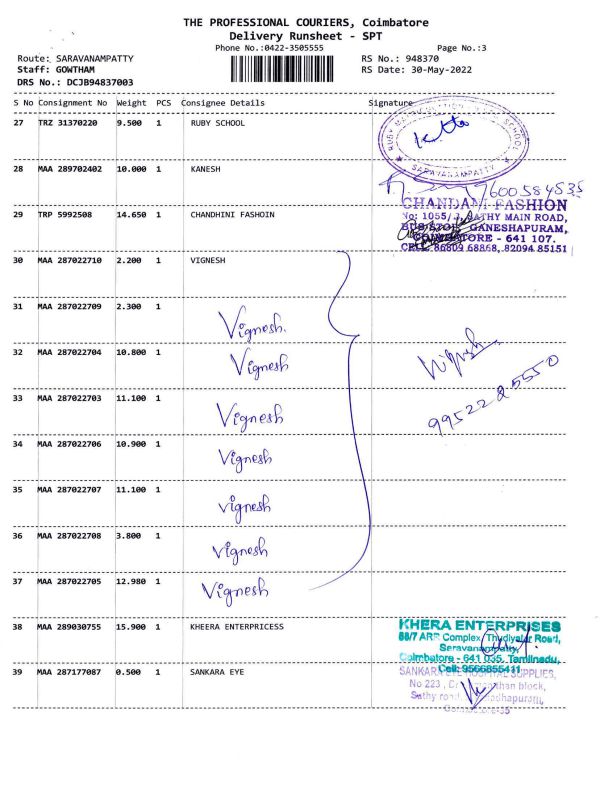 THE PROFESSIONAL COURIERS, Coimbatore
Delivery Runsheet - SPT
Phone No.:0422-3505555 Page No.:3
Route: SARAVANAMPATTY RS No.: 948370
Staff: GOWTHAM RS Date: 30-May-2022
DRS No.: DCJB94837003
S No Consignment No Weight PCS Consignee Details Signature
27 TRZ 31370220 9.500 1 RUBY SCHOOL
RUBY SCHOOL
SARAVANAMPATTY
28 MAA 289702402 10.000 1 KANESH
7600584535
29 TRP 5992508 14.650 1 CHANDHINI FASHOIN
CHANDANI FASHION
No: 1055/ ATHY MAIN ROAD,
BUS STOP, GANESHAPURAM,
COIMBATORE - 641 107.
CELL: 86809 68868, 82094 85151
30 MAA 287022710 2.200 1 VIGNESH
31 MAA 287022709 2.300 1 Vignesh.
32 MAA 287022704 10.800 1 Vignesh
Vignesh
9952225550
33 MAA 287022703 11.100 1 Vignesh
34 MAA 287022706 10.900 1 Vignesh
35 MAA 287022707 11.100 1 Vignesh
36 MAA 287022708 3.800 1 Vignesh
37 MAA 287022705 12.980 1 Vignesh
38 MAA 289030755 15.900 1 KHEERA ENTERPRICESS
KHERA ENTERPRISES
68/7 ARR Complex, Thudiyalur Road,
Seravanampatty,
Coimbatore - 641 035. Tamilnadu,
Cell: 9566855411
39 MAA 287177087 0.500 1 SANKARA EYE
SANKARA EYE HOSPITAL SUPPLIES,
No 223 , block,
Sathy road,
Coimbatore-35